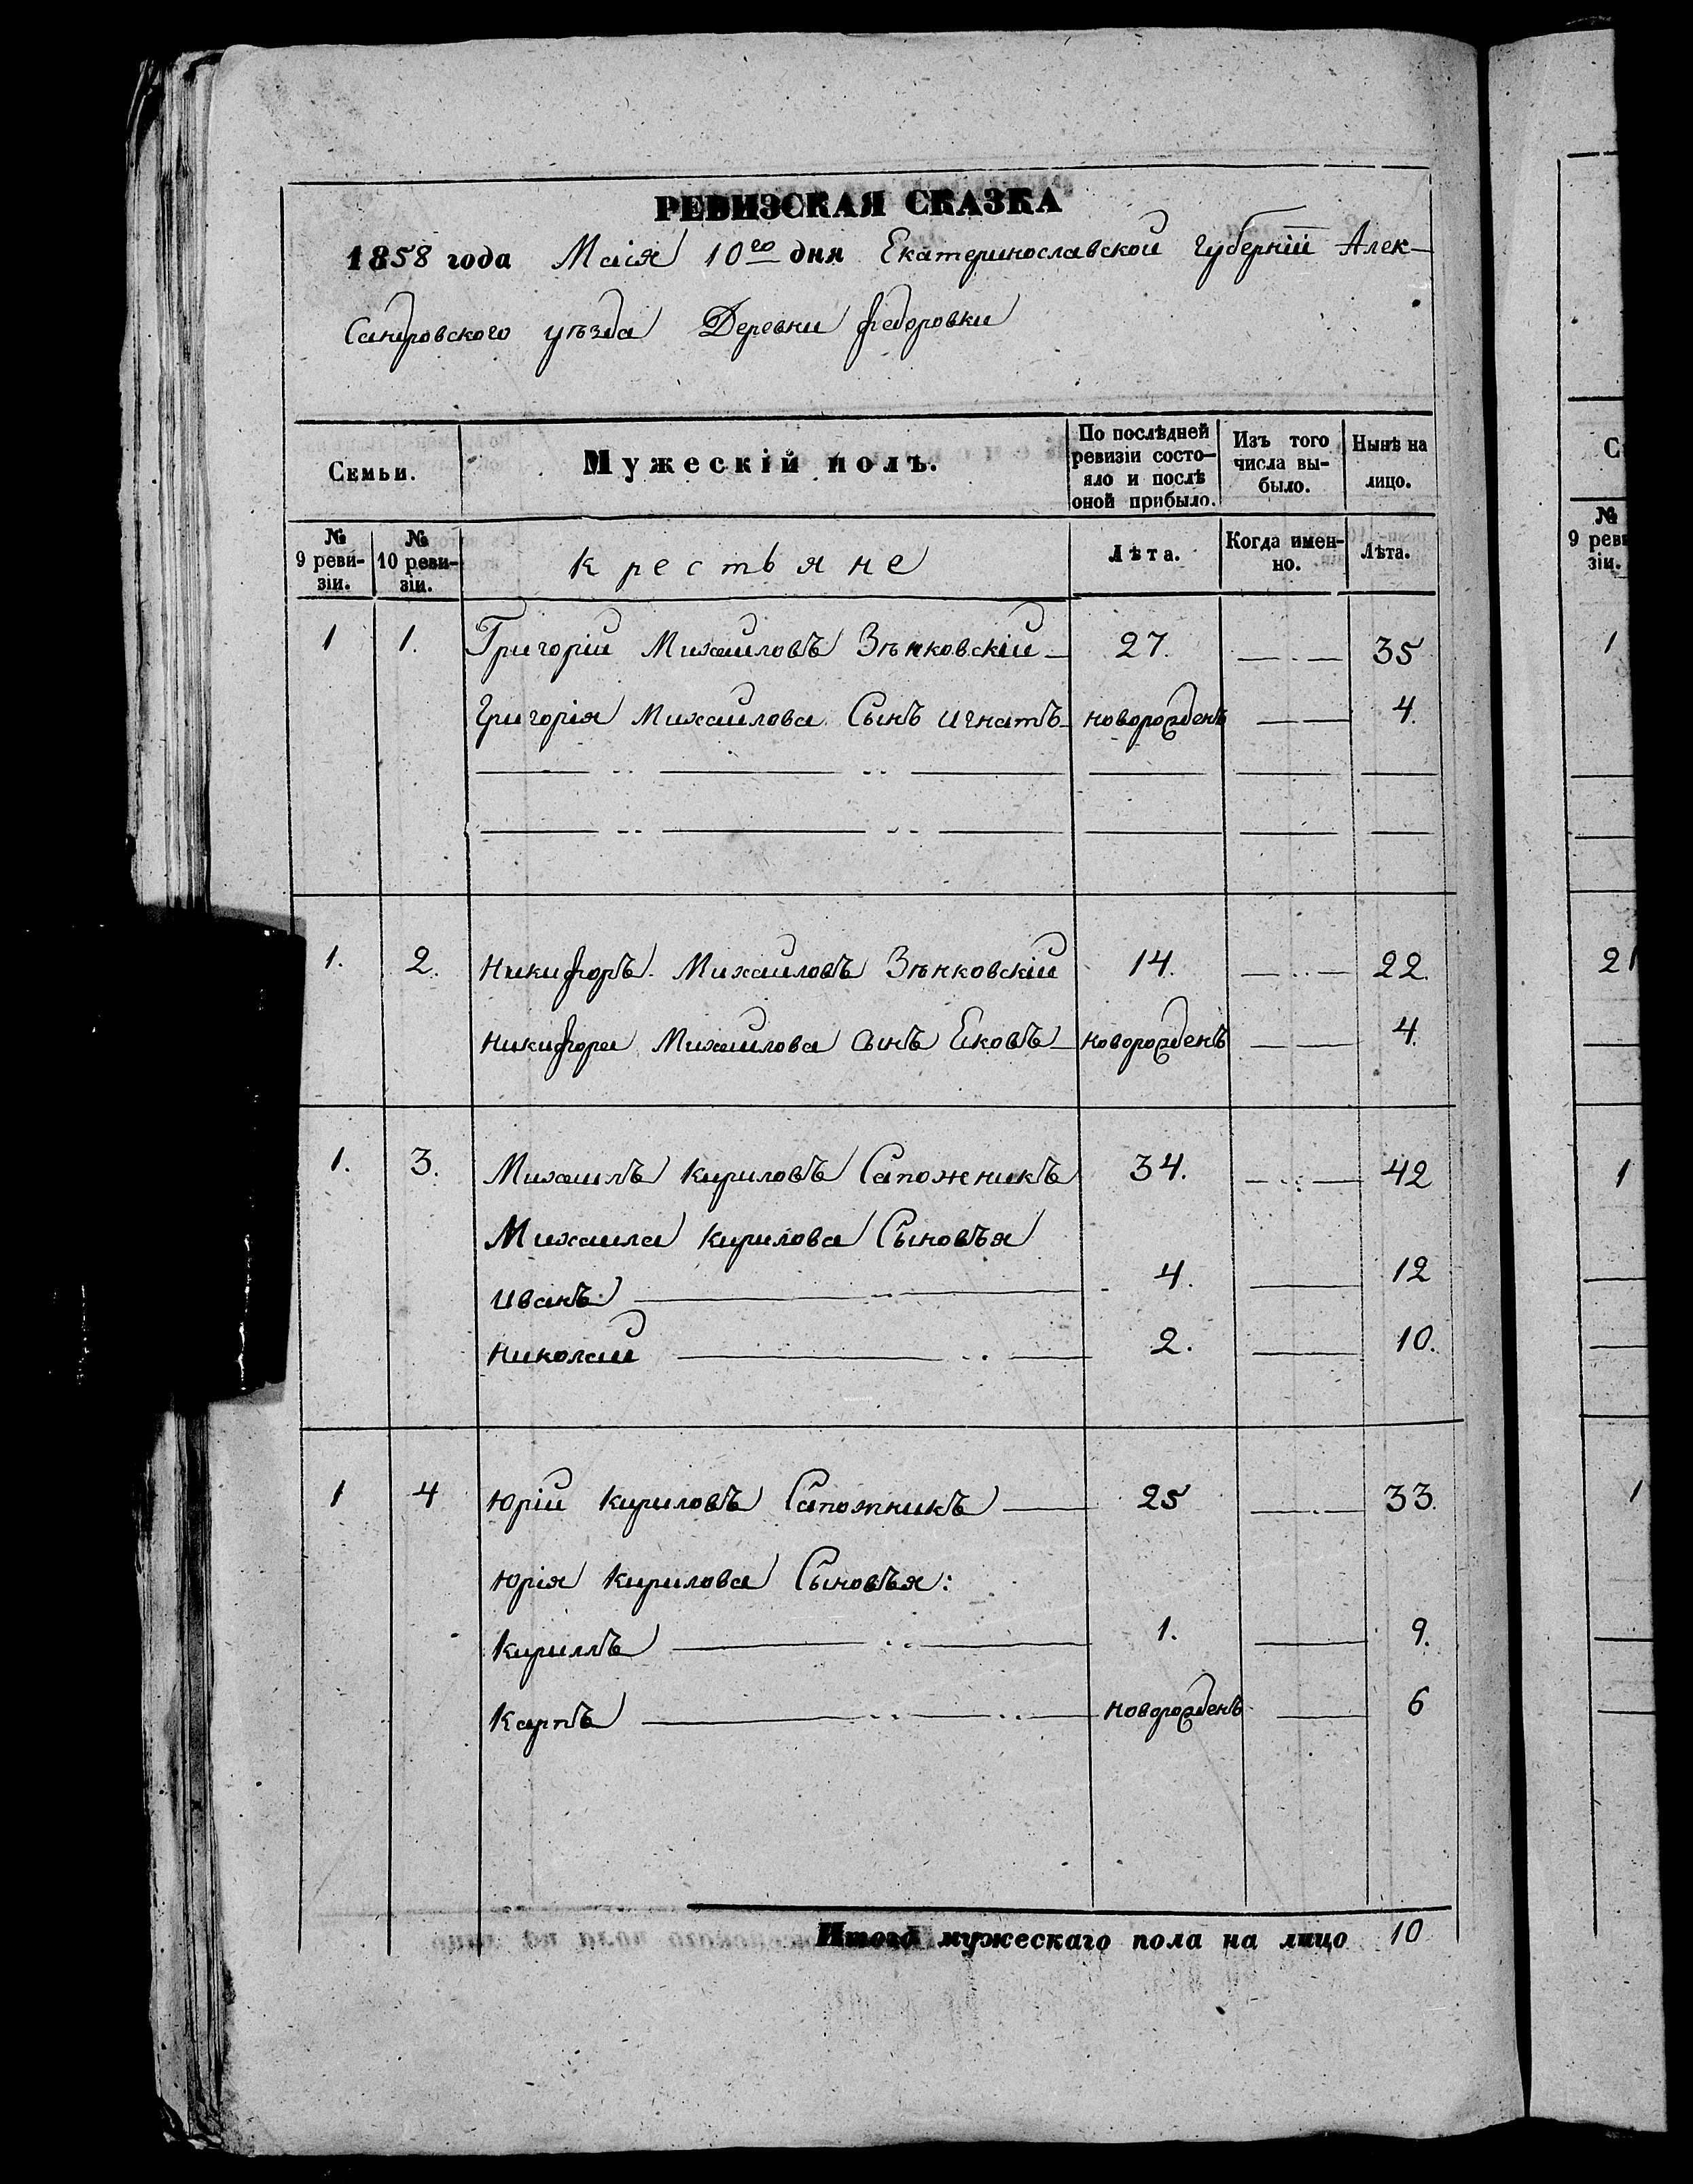 РЕВИЗСКАЯ СКАЗКА
1858 года Маія 10го дня Екатеринославской Губерніи Алек-
сандровского уѣзда Деревни Федоровки
Семьи.
Мужескій полъ.
По послѣдней ревизіи состо-
яло и послѣ оной прибыло.
Изъ того числа вы-
было.
Нынѣ на лицо.
№ 9 реви-
зіи.
№ 10 реви-
зіи.
Крестьяне
Лѣта.
Когда имен-
но.
Лѣта.
1 1. Григорій Михайловъ Зѣнковскій 27. 35
Григорія Михайлова Сынъ Игнатъ новорожденъ 4.
1. 2. Никифоръ Михайловъ Зѣнковскій 14. 22.
Никифора Михайлова сынъ Яковъ новорожденъ 4.
1. 3. Михаилъ Кириловъ Сапожникъ 34. 42
Михаила Кирилова Сыновъя
Иванъ 4. 12
Николай 2. 10.
1 4 Юрій Кириловъ Сапожникъ 25 33.
Юрія Кирилова Сыновъя:
Кирилъ 1. 9.
Карпъ новорожденъ 6
Итого мужескаго пола на лицо 10
С
№
9 реви
зіи.
1
2
1
1